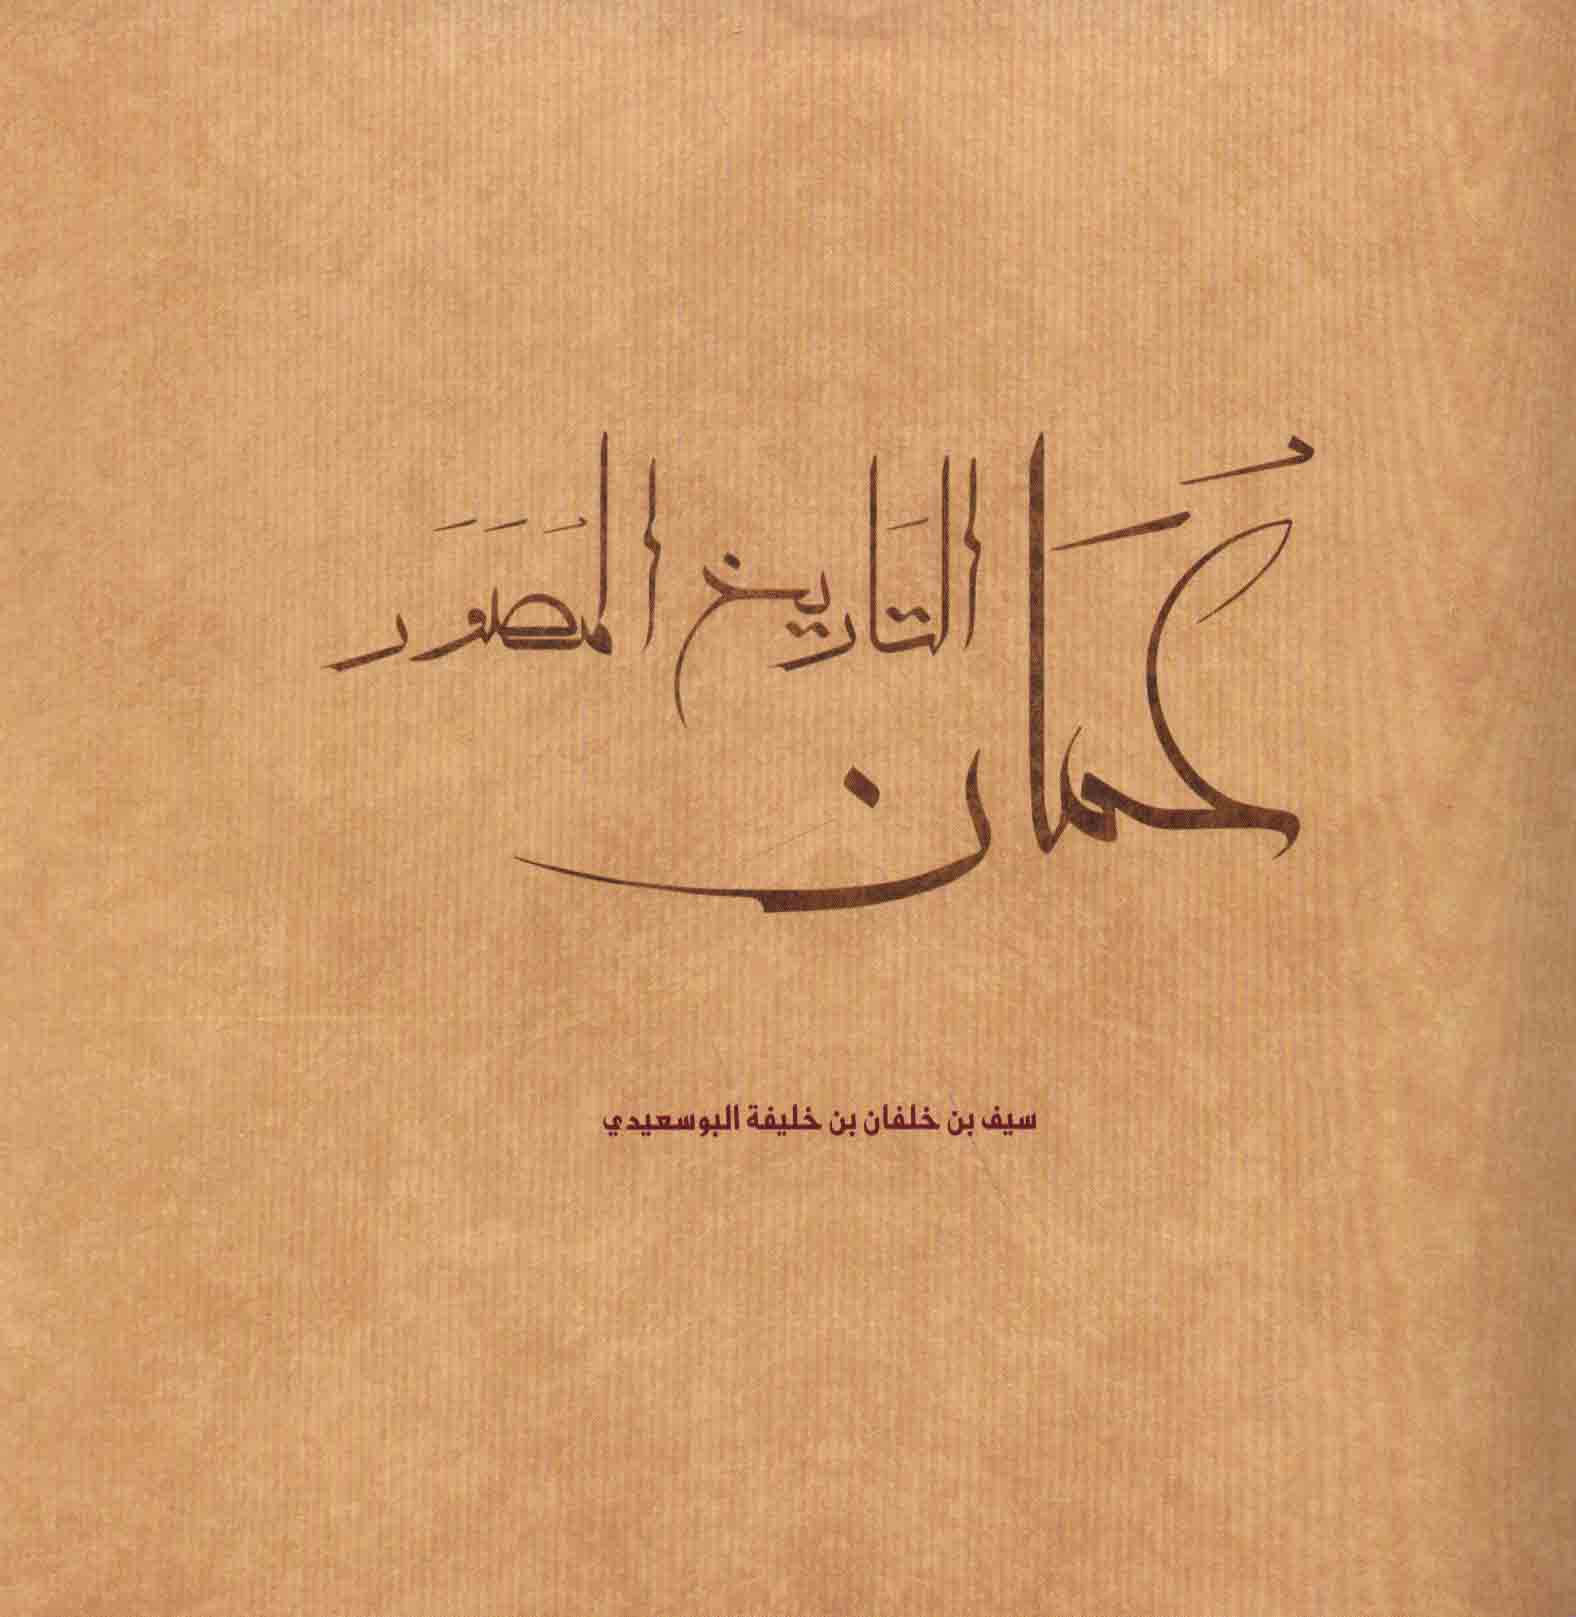 عُمَان
التَاريخ المُصَوَر
سيف بن خلفان بن خليفة البوسعيدي